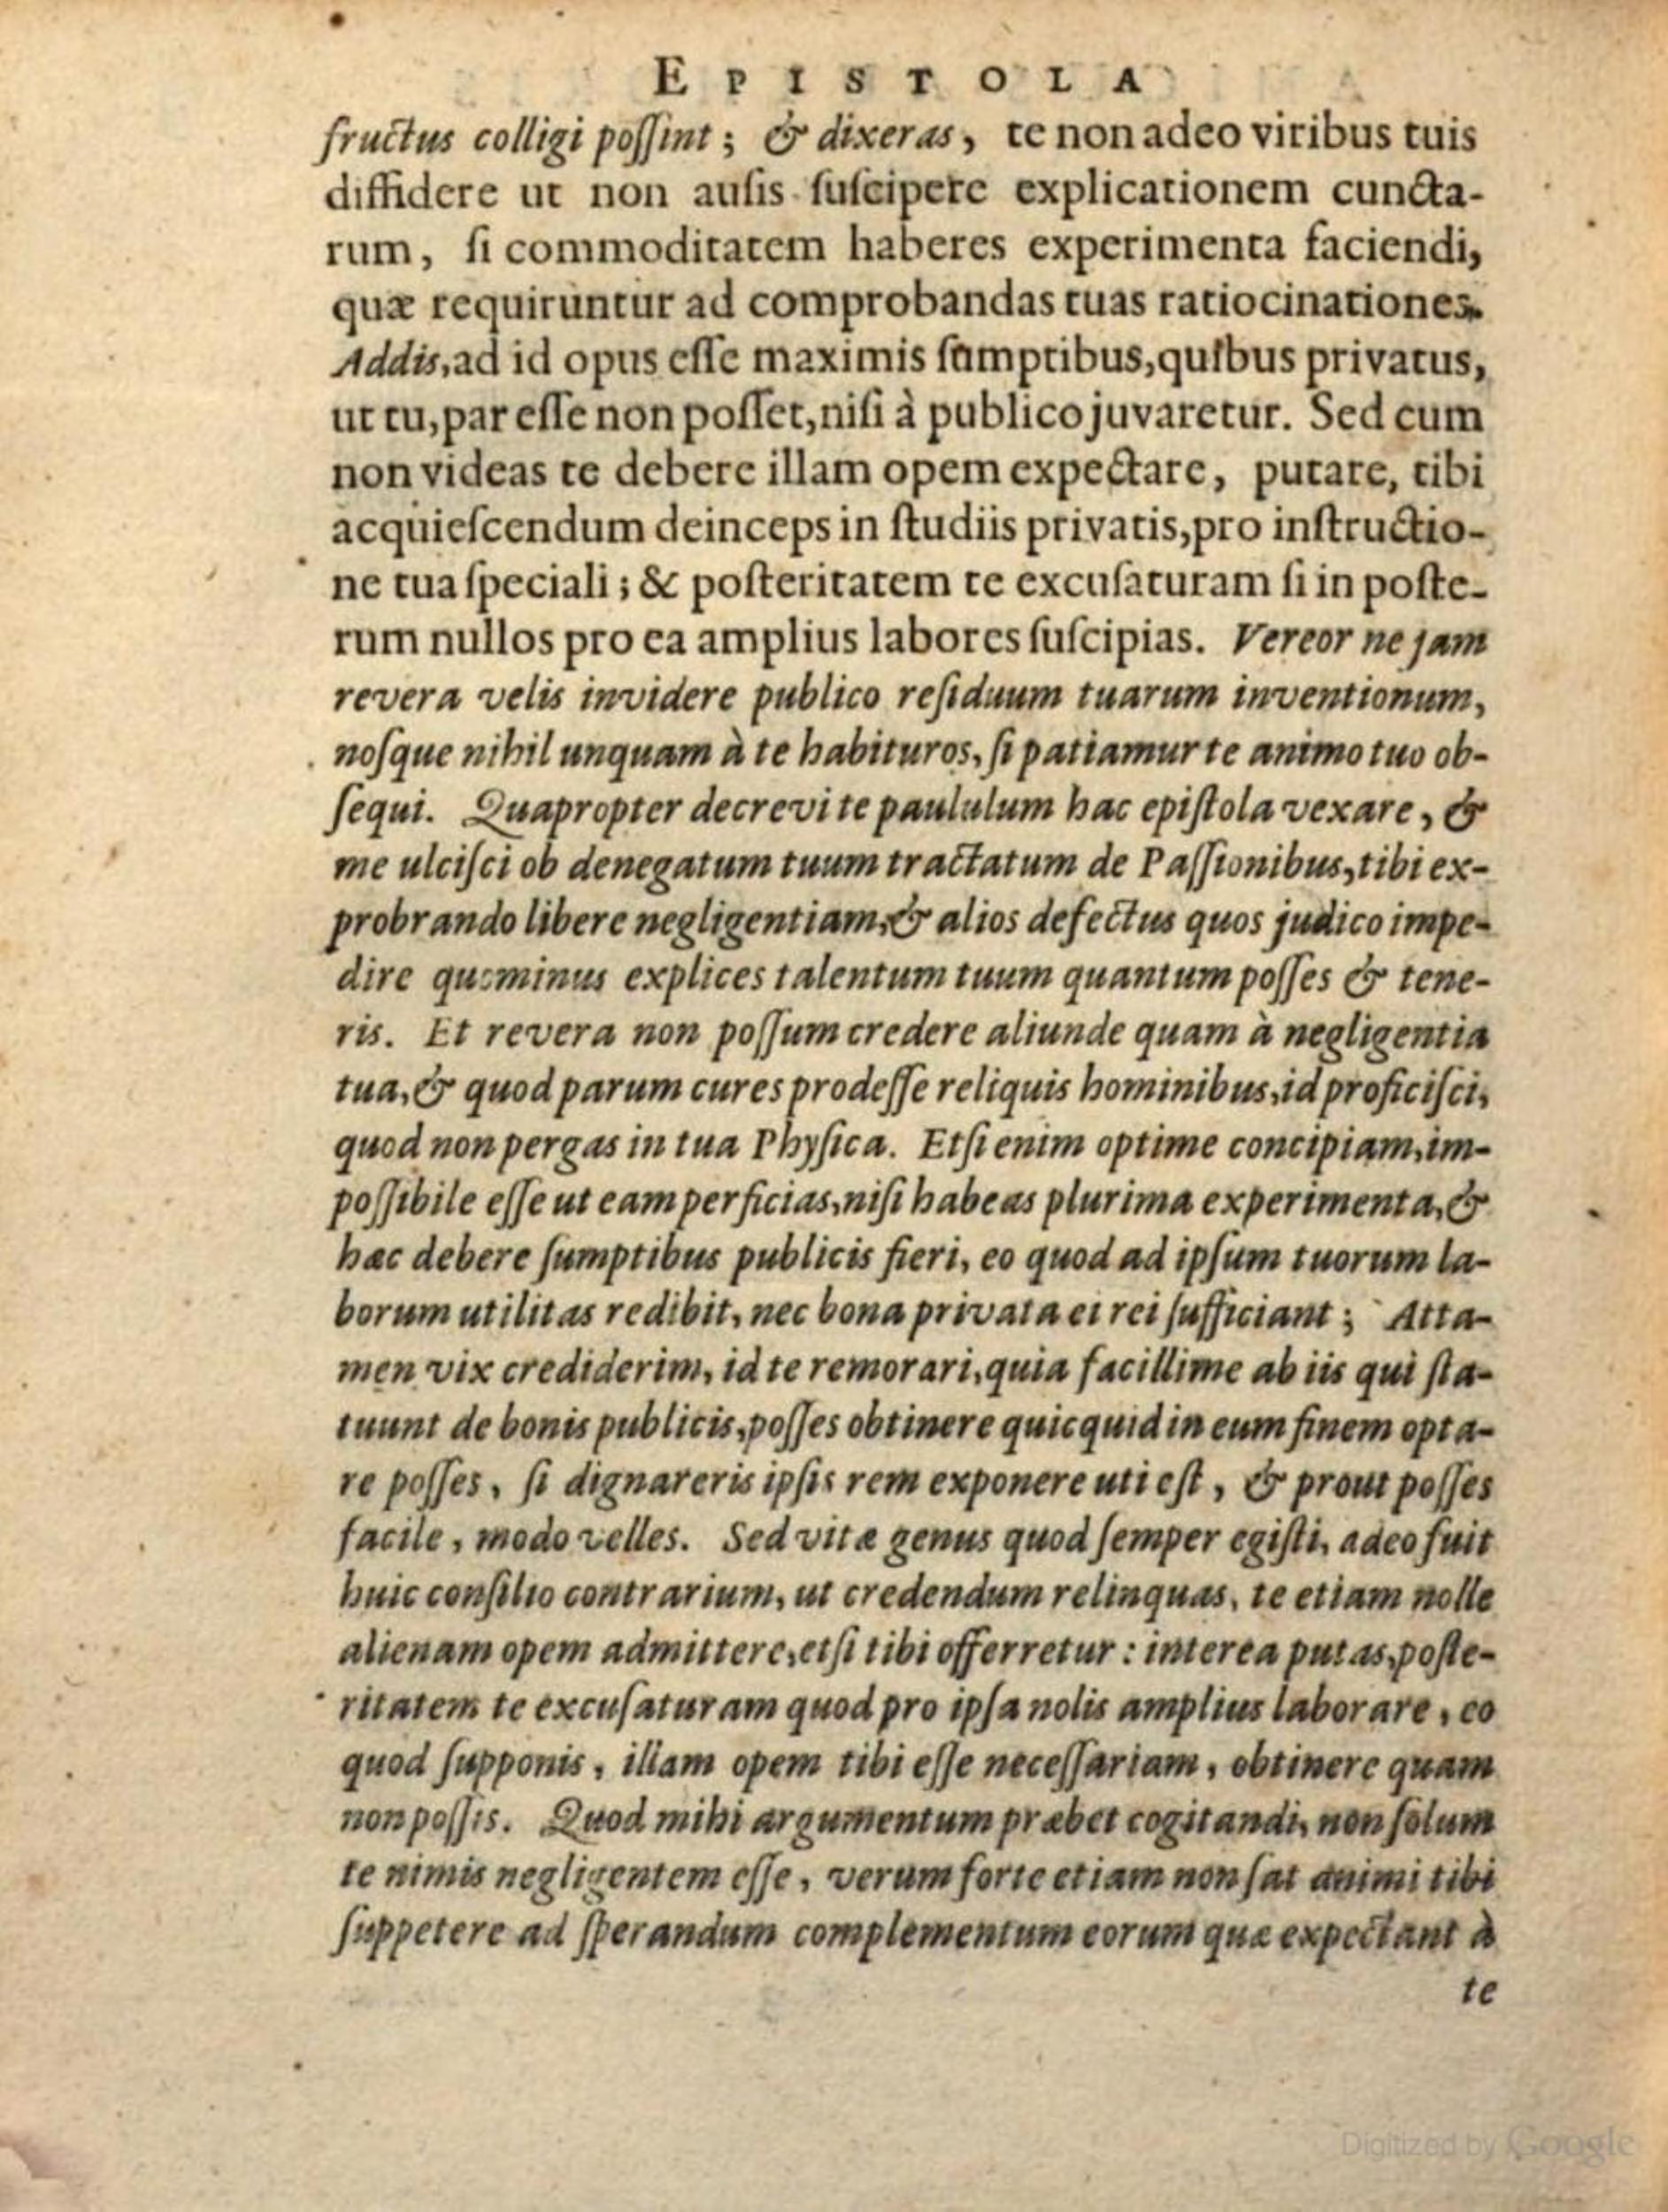 EPISTOLA
fructus colligi poſſint; & dixeras, te non adeo viribus tuis
diffidere ut non auſis ſuſcipere explicationem cuncta-
rum, ſi commoditatem haberes experimenta faciendi,
quæ requiruntur ad comprobandas tuas ratiocinationes.
Addis, ad id opus eſſe maximis ſumptibus, quibus privatus,
ut tu, par eſſe non poſſet, niſi à publico juvaretur. Sed cum
non videas te debere illam opem expectare, putare, tibi
acquieſcendum deinceps in ſtudiis privatis, pro inſtructio-
ne tua ſpeciali; & poſteritatem te excuſaturam ſi in poſte-
rum nullos pro ea amplius labores ſuſcipias. Vereor ne jam
revera velis invidere publico reſiduum tuarum inventionum,
noſque nihil unquam à te habituros, ſi patiamur te animo tuo ob-
ſequi. Quapropter decrevi te paululum hac epiſtola vexare, &
me ulciſci ob denegatum tuum tractatum de Paſſionibus, tibi ex-
probrando libere negligentiam, & alios defectus quos judico impe-
dire quominus explices talentum tuum quantum poſſes & tene-
ris. Et revera non poſſum credere aliunde quam à negligentia
tua, & quod parum cures prodeſſe reliquis hominibus, id proficiſci,
quod non pergas in tua Phyſica. Etſi enim optime concipiam, im-
poſſibile eſſe ut eam perficias, niſi habeas plurima experimenta, &
hæc debere ſumptibus publicis fieri, eo quod ad ipſum tuorum la-
borum utilitas redibit, nec bona privata ei rei ſufficiant; Atta-
men vix crediderim, id te remorari, quia facillime ab iis qui ſta-
tuunt de bonis publicis, poſſes obtinere quicquid in eum finem opta-
re poſſes, ſi dignareris ipſis rem exponere uti eſt, & prout poſſes
facile, modo velles. Sed vitæ genus quod ſemper egiſti, adeo fuit
huic conſilio contrarium, ut credendum relinquas, te etiam nolle
alienam opem admittere, etſi tibi offerretur: interea putas, poſte-
ritatem te excuſaturam quod pro ipſa nolis amplius laborare, eo
quod ſupponis, illam opem tibi eſſe neceſſariam, obtinere quam
non poſſis. Quod mihi argumentum præbet cogitandi, non ſolum
te nimis negligentem eſſe, verum forte etiam non ſat animi tibi
ſuppetere ad ſperandum complementum eorum quæ expectant à
te
Digitized by Google